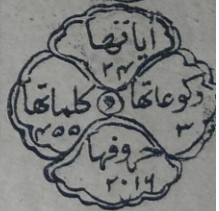 اٰیاتها
٣٤
رکوعاتها
٣
و
کلماتها
٤٥٥
حروفها
٢٠١٦